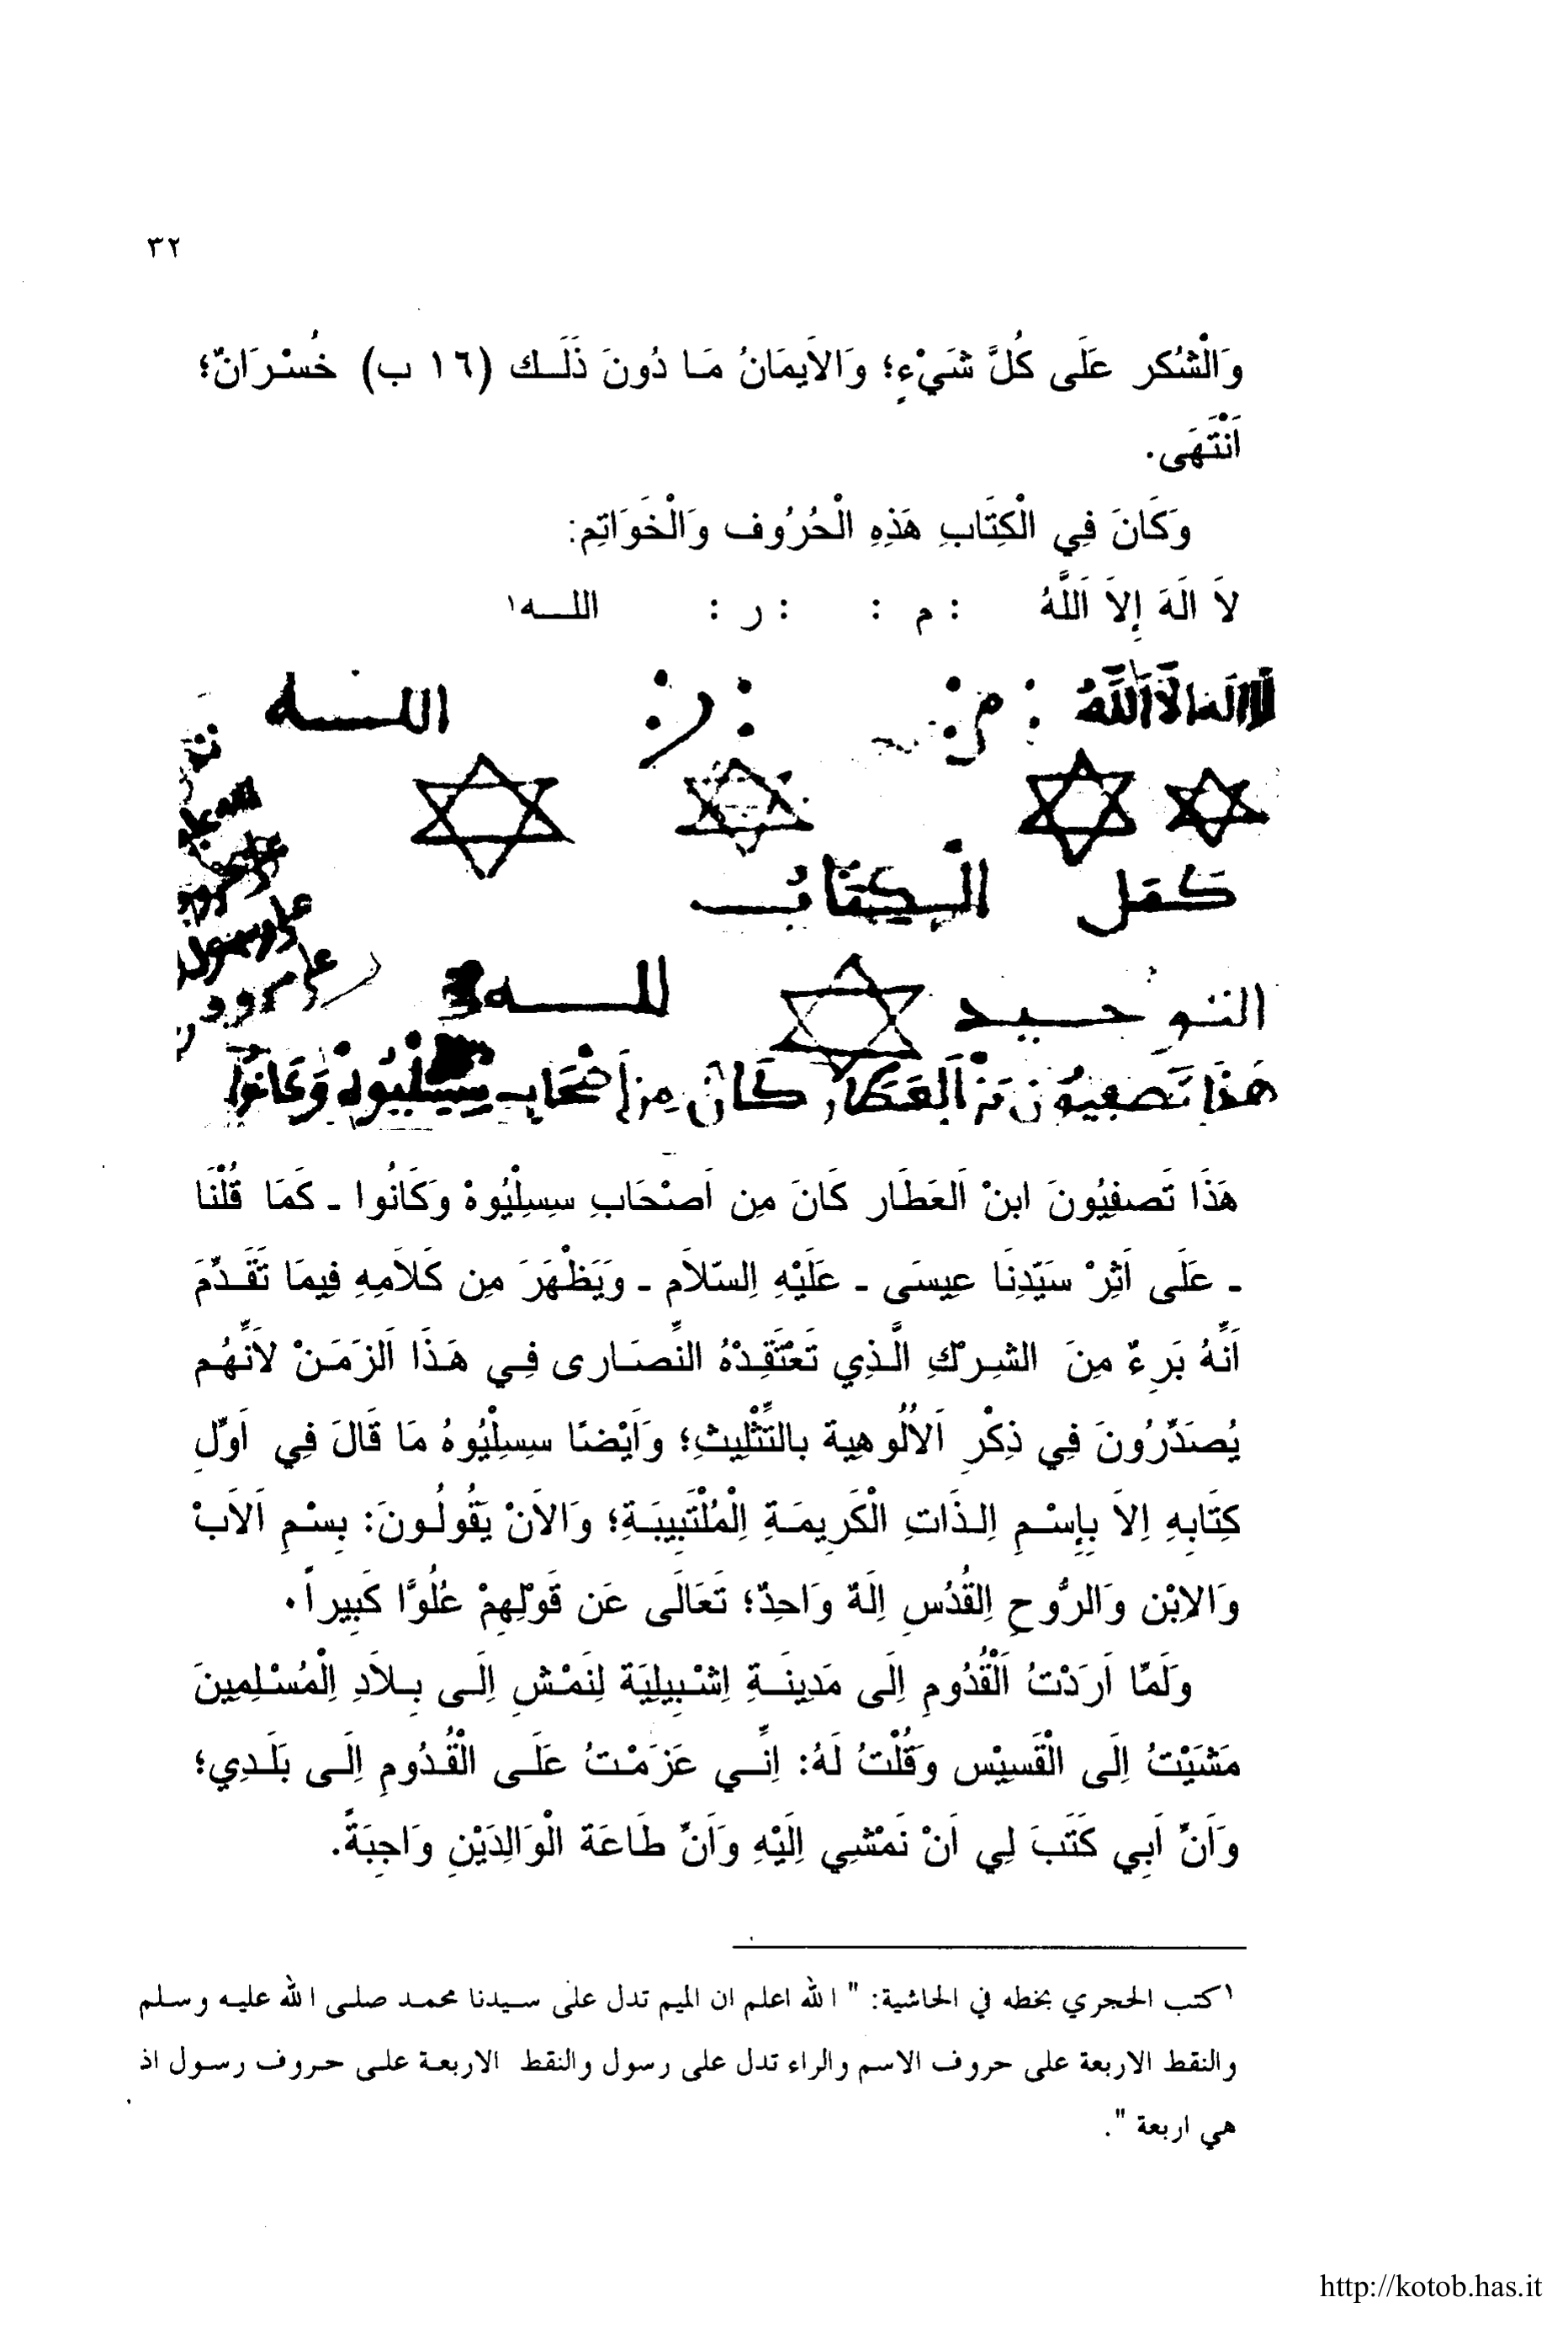 ٣٢
وَالْشُكر عَلَى كُلَّ شَيْءٍ؛ وَالاَيمَانُ مَا دُونَ ذَلَـك (١٦ ب) خُسْرَانٌ؛
اَنْتَهَى.
وَكَانَ فِي الْكِتَابِ هَذِهِ الْحُرُوف وَالْخَوَاتِم:
لاَ الَهَ إِلاَ اَللَّهُ : م : : ر : اللـه١
لا اله الا الله : م : : ر : اللــه
كمل الكتاب
التوحيد لله
هَذَا تَصفِيُون بن اَلعَطَار كَانَ مِن اَصْحَابِ سِسِلْيُوهْ وَكَانُوا
هَذَا تَصفِيُونَ ابنْ اَلعَطَار كَانَ مِن اَصنْحَابِ سِسِلِيُوهْ وَكَانُوا ـ كَمَا قُلْنَا
ـ عَلَى اَثِرْ سَيّدِنَا عِيسَى ـ عَلَيْهِ اِلسّلاَم ـ وَيَظْهَرَ مِن كَلاَمِهِ فِيمَا تَقَـدّمَ
اَنَّهُ بَرِءٌ مِنَ الشِركِ الَّذِي تَعْتَقِدْهُ النّصَـارى فِـي هَـذَا اَلزَمَـنْ لاَنّهُـم
يُصَدّرُونَ فِي ذِكْرِ اَلاُلُوهِية بالتَّثْلِيثِ؛ وَاَيْضنًا سِسِلِيُوهُ مَا قَالَ فِي اَوّلِ
كِتَابِهِ اِلاَ بِاِسْـمِ اِلـذَاتِ الْكَرِيمَـةِ اِلْمُلْتَبِيبَـةِ؛ وَالاَنْ يَقُولُـونَ: بِسْـمِ اَلاَبْ
وَالاِبْن وَالرُّوحِ اِلقُدُسِ اِلَهٌ وَاحِدٌ؛ تَعَالَى عَن قَولِهِمْ عُلُوًّا كَبِيراً.
وَلَمّا اَرَدْتُ اَلْقُدُومِ اِلَى مَدِينَـةِ اِشْـبِيلِيَة لِنَمْـشِ اِلَـى بِـلاَدِ اِلْمُسْـلِمِينَ
مَشَيْتُ اِلَى الْقَسِيْس وَقُلْتُ لَهُ: اِنّـي عَزَمْـتُ عَلَـى الْقُـدُومِ اِلَـى بَلَـدِي؛
وَاَنّ اَبِي كَتَبَ لِي اَنْ نَمْشِي اِلَيْهِ وَاَنّ طَاعَة الْوَالِدَيْنِ وَاجِبَةً.
١ كتب الحجري بخطه في الحاشية: " الله اعلم ان الميم تدل على سيدنا محمد صلى الله عليه وسلم
والنقط الاربعة على حروف الاسم والراء تدل على رسول والنقط الاربعة على حروف رسول اذ
هي اربعة ".
http://kotob.has.it